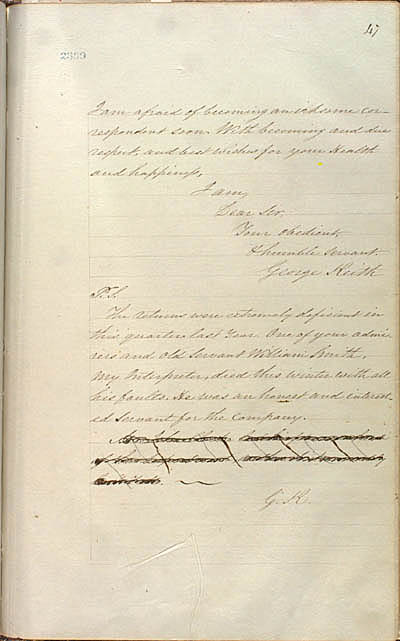 47
2389
I am afraid of becoming an irksome cor-
respondent soon. With becoming and due
respect, and best wishes for your Health
and happiness,
I am,
Dear Sir,
Your obedient,
& humble servant.
George Keith
P.S.
The returns were extremely deficient in
this quarter last Year. One of your admi-
rers and old Servant William Smith,
my Interpreter, died this winter with all
his faults. He was an honest and interest-
ed Servant for the Company.
G. K.